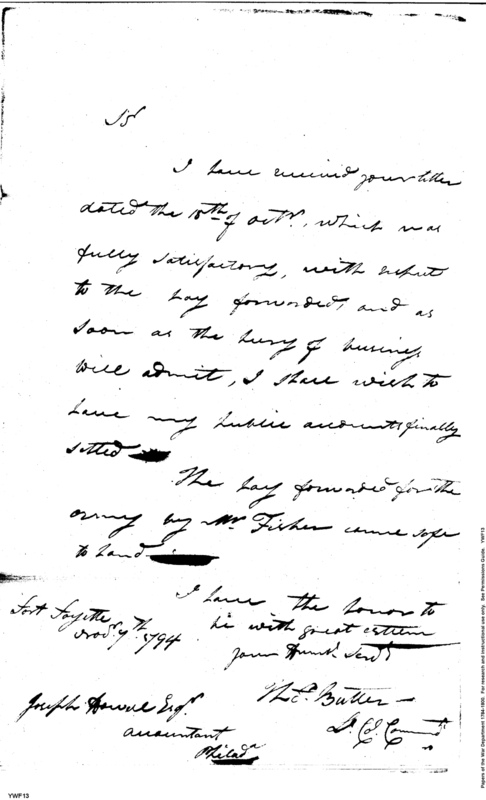 Sir
I have received your letter
dated the 18th of Octr. which was
fully satisfactory, with respect
to the pay forwarded, and as
soon as the hurry of business
will admit, I shall wish to
have my public accounts finally
settled
The pay forwarded for the
army by Mr Fisher came safe
to hand.
I have the honor to
be with great esteem
your Humb. Servt
Fort Fayette
Novr. 7th 1794
Thos. Butler
Lt. Col Commdt
Joseph Howell Esqr.
accountant
Philada
YWF13
Papers of the War Department 1784-1800. For research and instructional use only. See Permissions Guide. YWF13